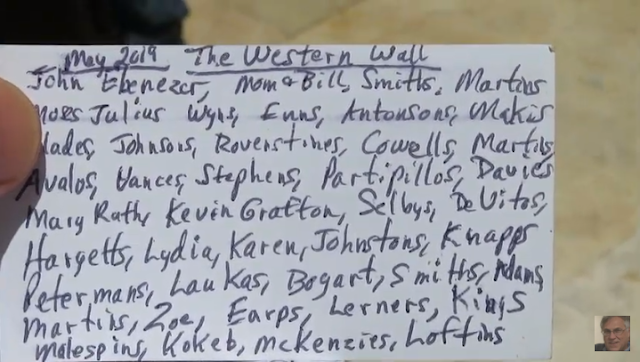 May 2019 The Western Wall
John Ebenezer, Mom & Bill, Smiths, Martins
Julius Wyns, Enns, Antonsons, Makis
Johnsons, Roverstines, Cowells, Martins,
Avalos, Vances, Stephens, Partipillos, Davies
Mary Ruth, Kevin Gratton, Selbys, DeVitos,
Hargetts, Lydia, Karen, Johnstons, Knapps
Petermans, Laukas, Bogart, Smiths, Adams,
Martins, Zoe, Earps, Lerners, Kings
Malespins, Kokeb, McKenzies, Loftins